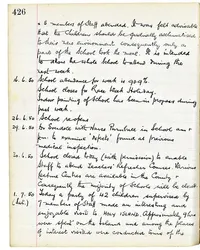 426
a 8 members of Staff attended. It was felt advisable
that the children should be gradually acclimatized
to their new environment consequently only a
part of the School took the meal. It is intended
to allow the whole School to attend during the
next week.
School attendance for week is 90.9%.
School closes for Race Week Holiday.
Indoor painting of School has been in progress during
past week.
School reopens
Dr Tonsdale with Nurse Purnature in School a.m &
p.m. to remind defects found at previous
medical inspection.
School closed today (with permission) to enable
Staff to attend Teachers' Refresher Course. Various
Lecture Centres are available in the County &
consequently the majority of Schools will be closed
1. 7. 80
today a party of 42 children supervised by
7 members of Staff made an interesting and
enjoyable visit to
were spent on the Island and among the places
of interest visited were conducted tours of the